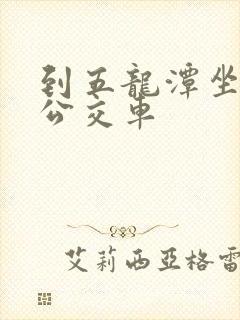 到五龍潭坐
公交車
艾莉西亞格雷